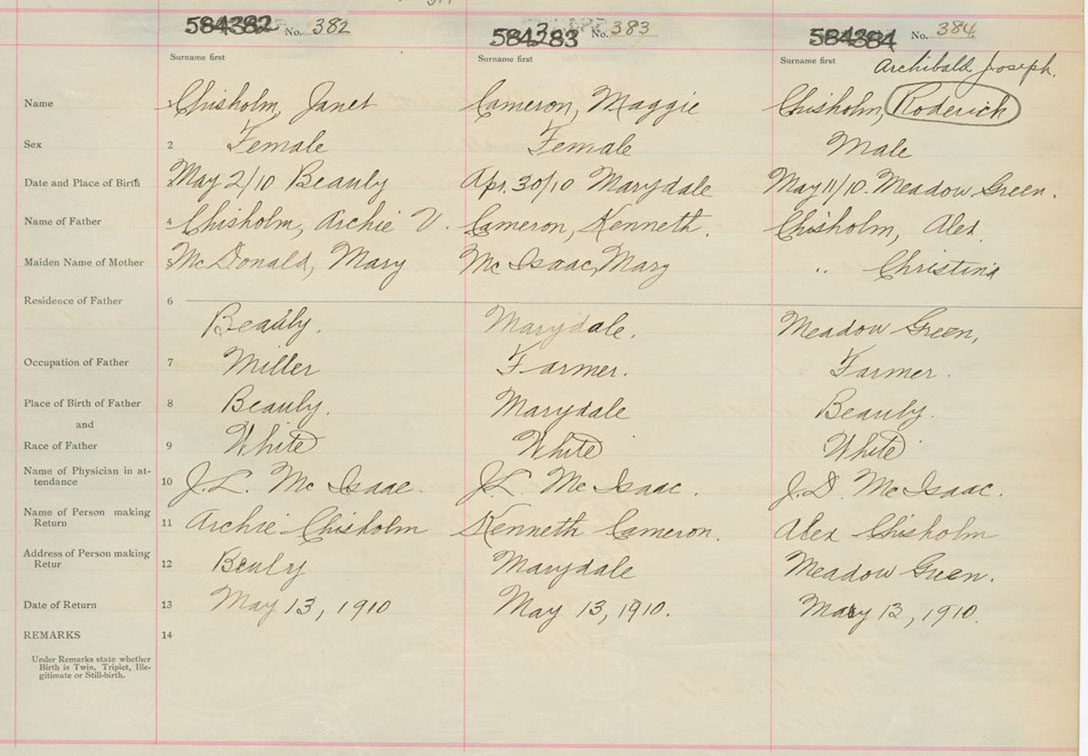 584382 No. 382 584383 No. 383 584384 No. 384
Surname first Surname first Surname first Archibald Joseph.
Name Chisholm, Janet Cameron, Maggie Chisholm, Roderick
Sex 2 Female Female Male
Date and Place of Birth May 2/10 Beauly Apr. 30/10 Marydale May 11/10. Meadow Green.
Name of Father 4 Chisholm, Archie V. Cameron, Kenneth. Chisholm, Alex.
Maiden Name of Mother 5 McDonald, Mary McIsaac, Mary " Christina
Residence of Father 6
Beauly. Marydale. Meadow Green,
Occupation of Father 7 Miller Farmer. Farmer.
Place of Birth of Father 8 Beauly. Marydale Beauly.
and
Race of Father 9 White White White
Name of Physician in at-
tendance 10 J.L. McIsaac. J.L. McIsaac. J.D. McIsaac.
Name of Person making
Return 11 Archie Chisholm Kenneth Cameron. Alex Chisholm
Address of Person making
Retur 12 Beuly Marydale Meadow Green.
Date of Return 13 May 13, 1910 May 13, 1910. May 13, 1910.
REMARKS 14
Under Remarks state whether
Birth is Twin, Triplet, Ille-
gitimate or Still-birth.